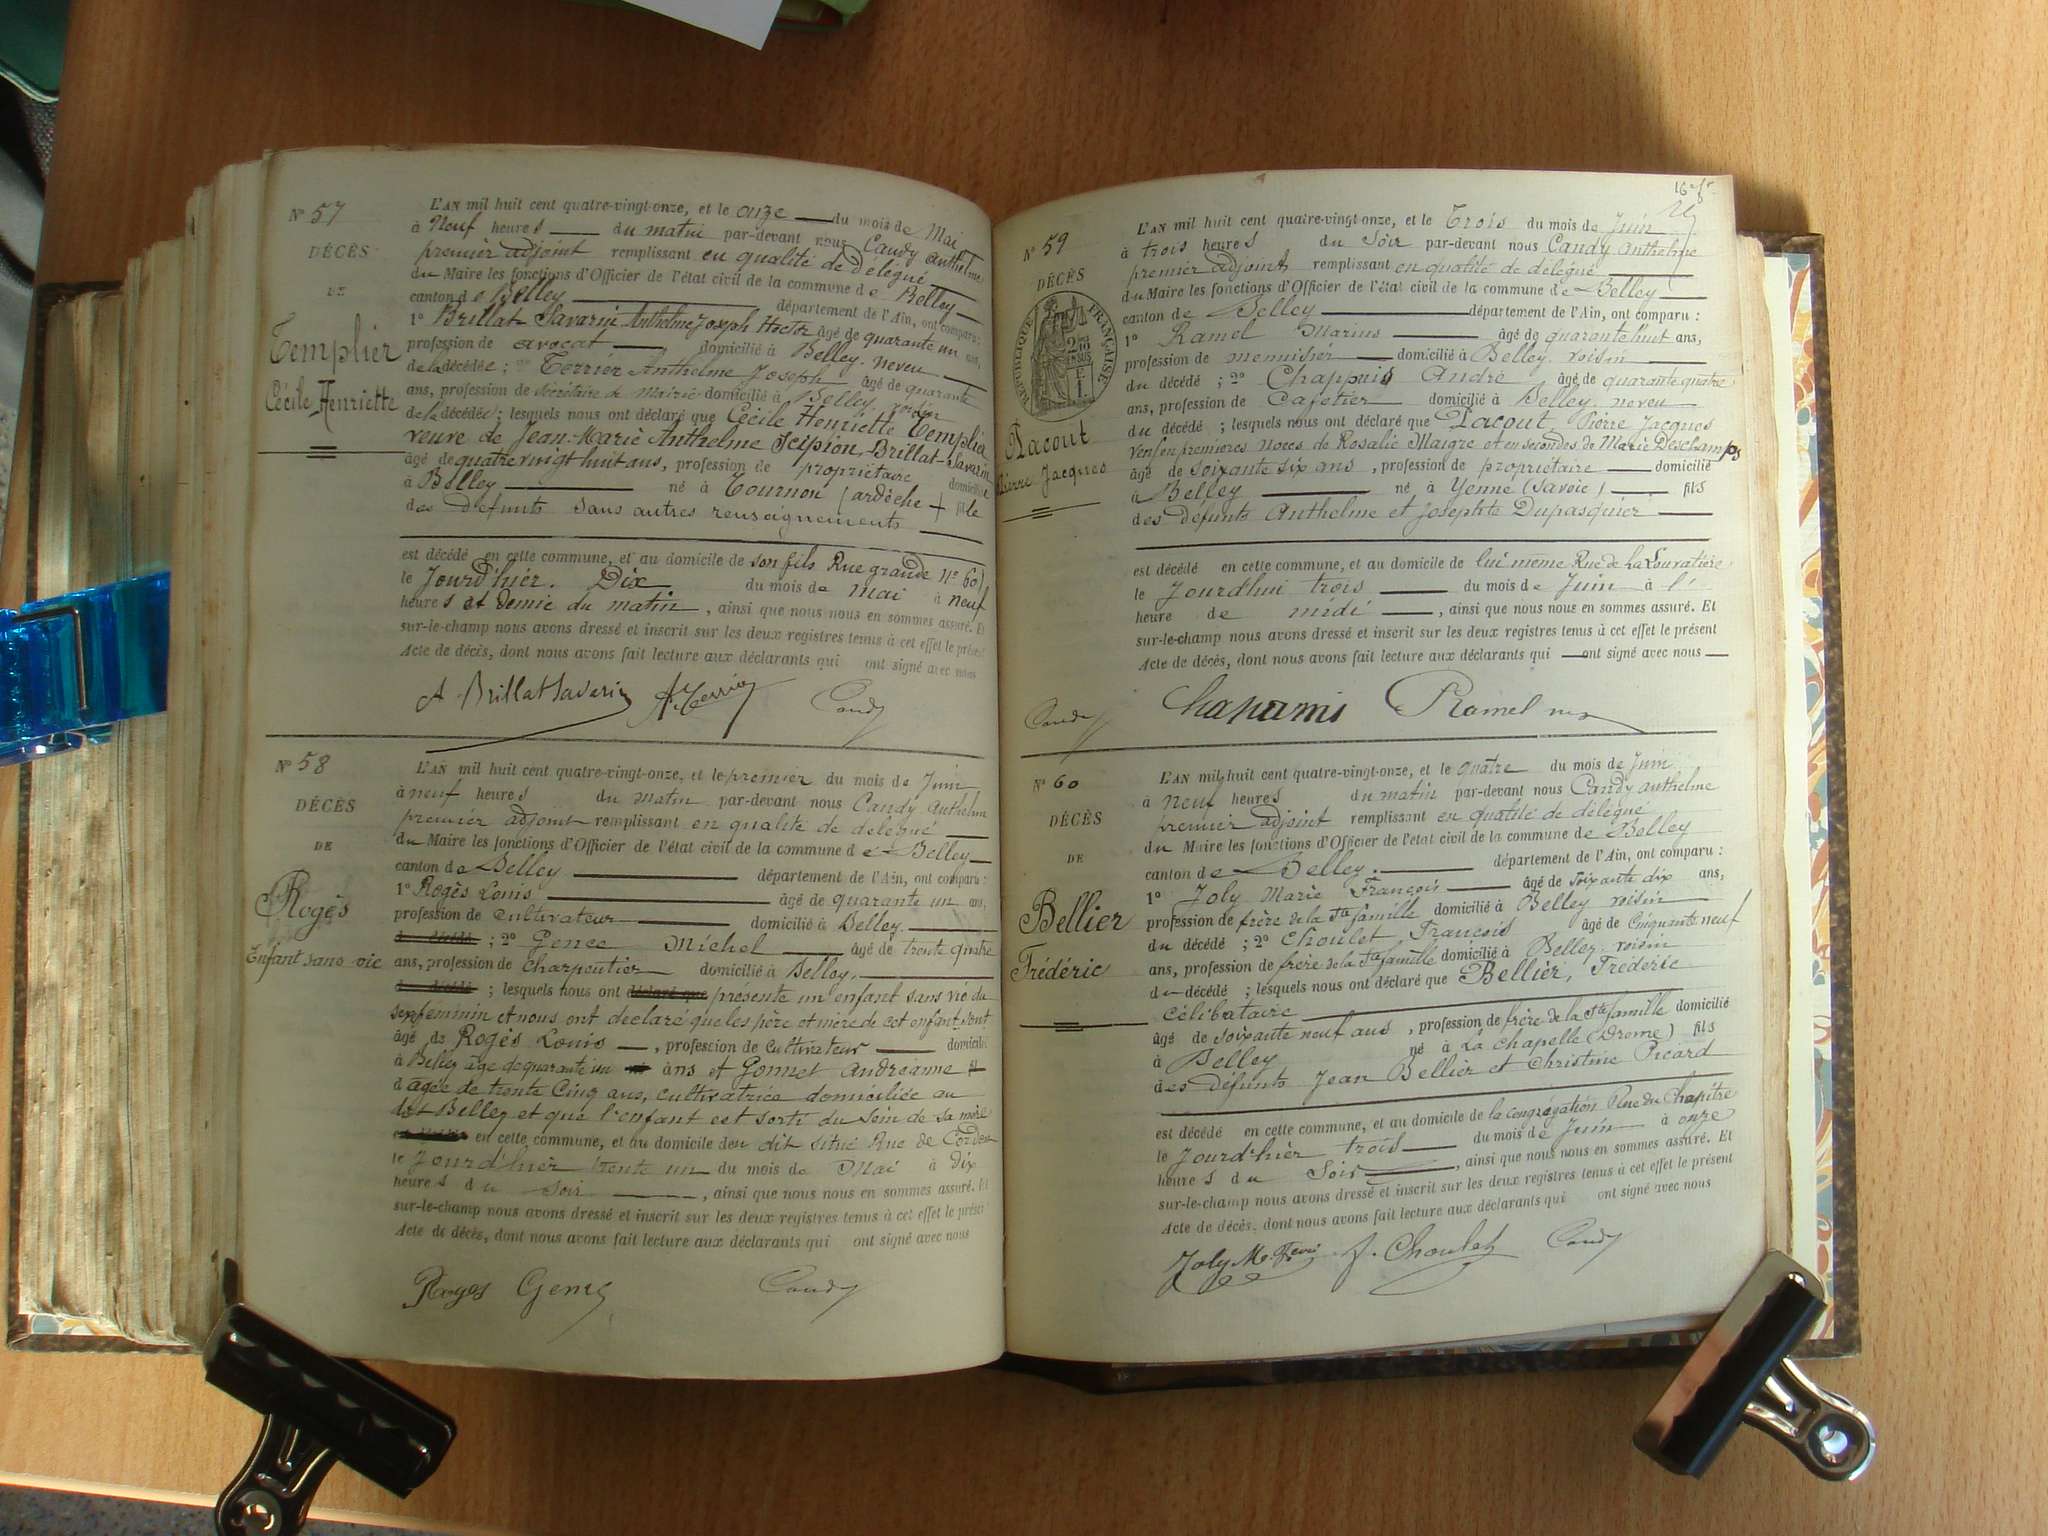 N° 57
DÉCÈS
DE
Templier
Cécile Henriette
L'AN mil huit cent quatre-vingt-onze, et le onze du mois de Mai
à Neuf heures du matin par-devant nous Candy Anthelme
premier adjoint remplissant en qualité de délégué
du Maire les fonctions d'Officier de l'état civil de la commune de Belley
canton de Belley département de l'Ain, ont comparu :
1° Brillat-Savarin Anthelme Joseph Hector âgé de quarante un ans,
profession de avocat domicilié à Belley. neveu
de la décédée ; 2° Terrier Anthelme Joseph âgé de quarante
ans, profession de secrétaire de Mairie domicilié à Belley voisin
de la décédée ; lesquels nous ont déclaré que Cécile Henriette Templier
veuve de Jean-Marie Anthelme Scipion Brillat-Savarin
âgé de quatre vingt huit ans, profession de propriétaire domicilié
à Belley né à Tournon (ardèche) fille
des défunts sans autres renseignements
est décédé en cette commune, et au domicile de son fils Rue grande N° 60)
le Jourd'hier. Dix du mois de mai à neuf
heures et demie du matin, ainsi que nous nous en sommes assuré. Et
sur-le-champ nous avons dressé et inscrit sur les deux registres tenus à cet effet le présent
Acte de décès, dont nous avons fait lecture aux déclarants qui ont signé avec nous
A Brillat Savarin A. Terrier Candy
N° 58
DÉCÈS
DE
Rogès
Enfant sans vie
L'AN mil huit cent quatre-vingt-onze, et le premier du mois de Juin
à neuf heures du matin par-devant nous Candy Anthelme
premier adjoint remplissant en qualité de délégué
du Maire les fonctions d'Officier de l'état civil de la commune de Belley
canton de Belley département de l'Ain, ont comparu :
1° Rogès Louis âgé de quarante un ans,
profession de Cultivateur domicilié à Belley.
d décédé ; 2° Gence Michel âgé de trente quatre
ans, profession de Charpentier domicilié à Belley.
d décédé ; lesquels nous ont déclaré que présenté un enfant sans vie du
sexe feminin et nous ont declaré que les père et mère de cet enfant sont
âgé de Rogès Louis, profession de Cultivateur domicilié
à Belley âgé de quarante un ans et Gonnet Andréanne
agée de trente Cinq ans, cultivatrice domiciliée au
dit Belley et que l'enfant est sorti du sein de sa mère
en cette commune, et au domicile du dit situé Rue de
le Jourd'hier trente un du mois de Mai à dix
heures du soir, ainsi que nous nous en sommes assuré. Et
sur-le-champ nous avons dressé et inscrit sur les deux registres tenus à cet effet le présent
Acte de décès, dont nous avons fait lecture aux déclarants qui ont signé avec nous
Roges Gence Candy
N° 59
DÉCÈS
RÉPUBLIQUE FRANÇAISE
Pacout
Pierre Jacques
L'AN mil huit cent quatre-vingt-onze, et le Trois du mois de Juin
à trois heures du Soir par-devant nous Candy Anthelme
premier adjoint remplissant en qualité de délégué
du Maire les fonctions d'Officier de l'état civil de la commune de Belley
canton de Belley département de l'Ain, ont comparu :
1° Ramel Marius âgé de quarante huit ans,
profession de menuisier domicilié à Belley. voisin
du décédé ; 2° Chappuis André âgé de quarante quatre
ans, profession de Cafetier domicilié à Belley neveu
du décédé ; lesquels nous ont déclaré que Pacout, Pierre Jacques
veuf en premieres noces de Rosalie Maigre et en secondes de Marie Deschamps
âgé de soixante six ans, profession de propriétaire domicilié
à Belley né à Yenne (Savoie) fils
des défunts Anthelme et Josephte Dupasquier
est décédé en cette commune, et au domicile de lui même Rue de La Louratière
le Jourdhui trois du mois de Juin à l'
heure de midi, ainsi que nous nous en sommes assuré. Et
sur-le-champ nous avons dressé et inscrit sur les deux registres tenus à cet effet le présent
Acte de décès, dont nous avons fait lecture aux déclarants qui ont signé avec nous
Candy Chapuis Ramel
N° 60
DÉCÈS
DE
Bellier
Frédéric
L'AN mil huit cent quatre-vingt-onze, et le quatre du mois de Juin
à Neuf heures du matin par-devant nous Candy anthelme
premier adjoint remplissant en qualité de délégué
du Maire les fonctions d'Officier de l'état civil de la commune de Belley
canton de Belley. département de l'Ain, ont comparu :
1° Joly Marie François âgé de soixante dix ans,
profession de frère de la Ste famille domicilié à Belley voisin
du décédé ; 2° Choulet François âgé de Cinquante neuf
ans, profession de frère de la Ste famille domicilié à Belley. voisin
du décédé ; lesquels nous ont déclaré que Bellier, Frédéric
Célibataire
âgé de soixante neuf ans, profession de frère de la Ste famille domicilié
à Belley né à La Chapelle (Drome) fils
des défunts Jean Bellier et Christine Picard
est décédé en cette commune, et au domicile de la congrégation Rue du Chapitre
le Jourd'hier trois du mois de Juin à onze
heures du Soir, ainsi que nous nous en sommes assuré. Et
sur-le-champ nous avons dressé et inscrit sur les deux registres tenus à cet effet le présent
Acte de décès, dont nous avons fait lecture aux déclarants qui ont signé avec nous
Joly M. f. Choulet Candy